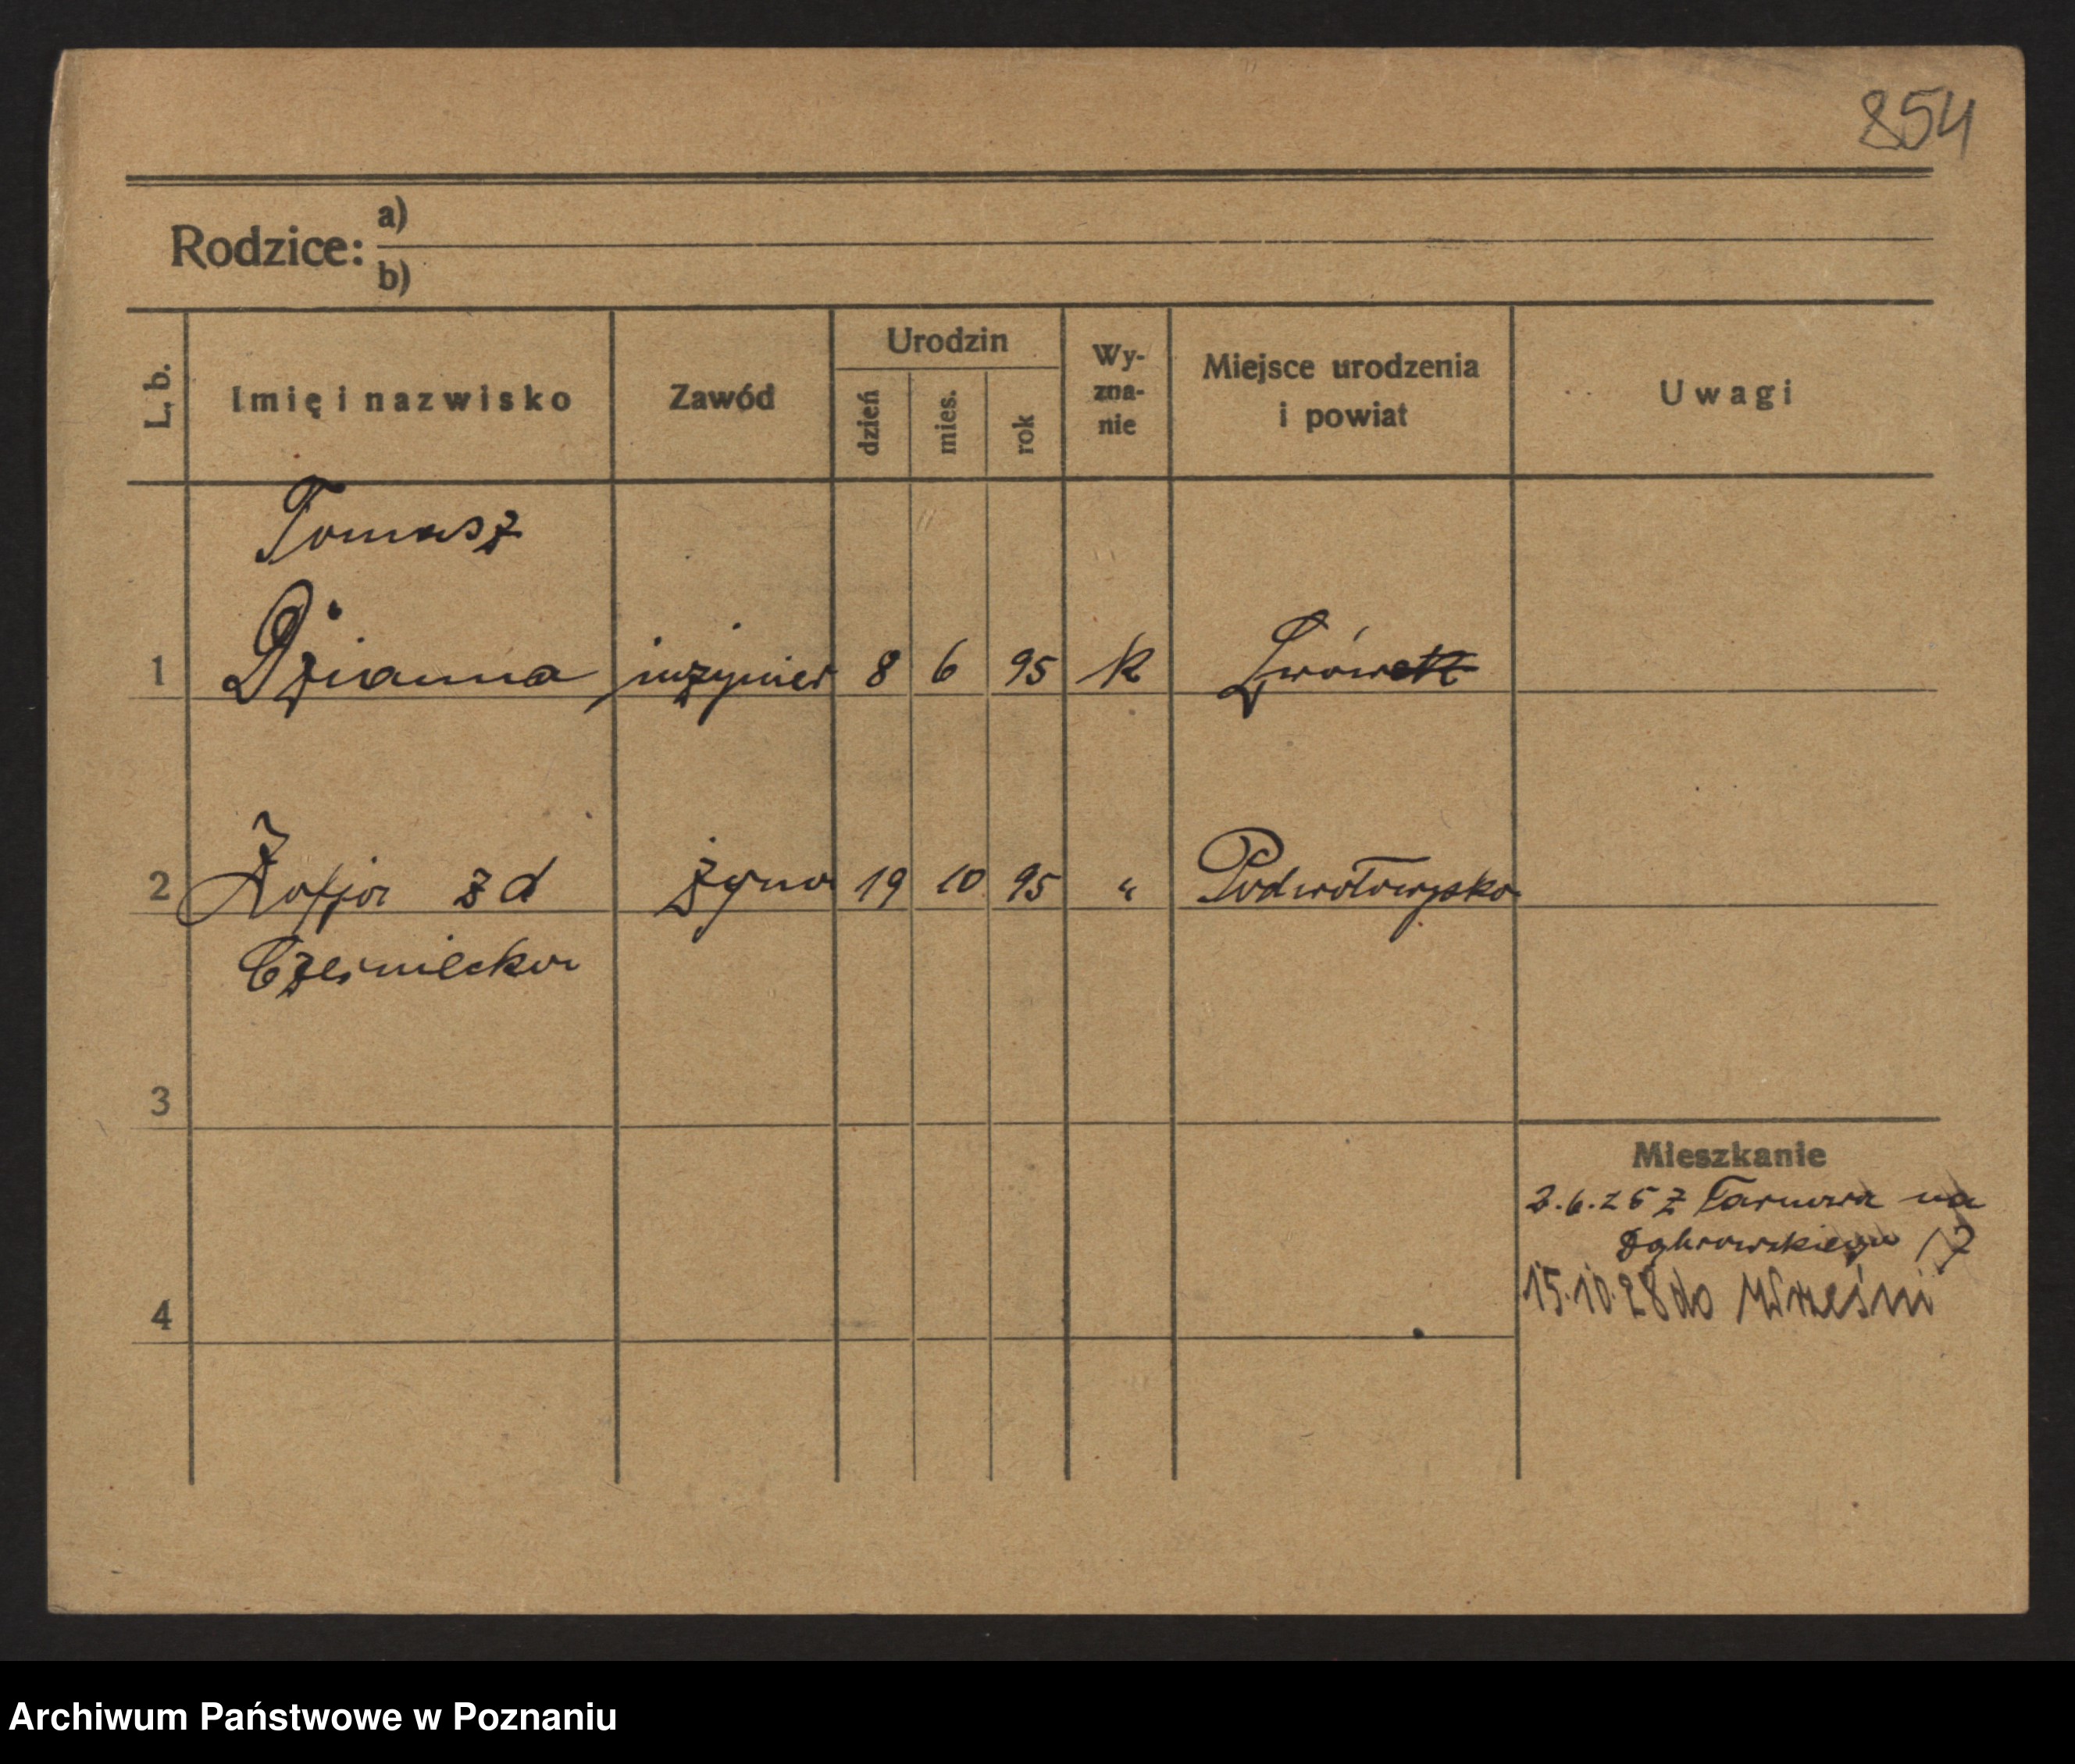 854
Rodzice: a)
b)
L. b. Imię i nazwisko Zawód Urodzin dzień mies. rok Wy-zna-nie Miejsce urodzenia i powiat Uwagi
Tomasz
1 Dżianna inżynier 8 6 95 k Lwów
2 Zofja zd żona 19 10 95 " Podwołoczyska
Cześnicka
3
Mieszkanie
2.6.25 z Tarnowa na
Dąbrowskiego 17
15.10.28 do Wrześni
4
Archiwum Państwowe w Poznaniu